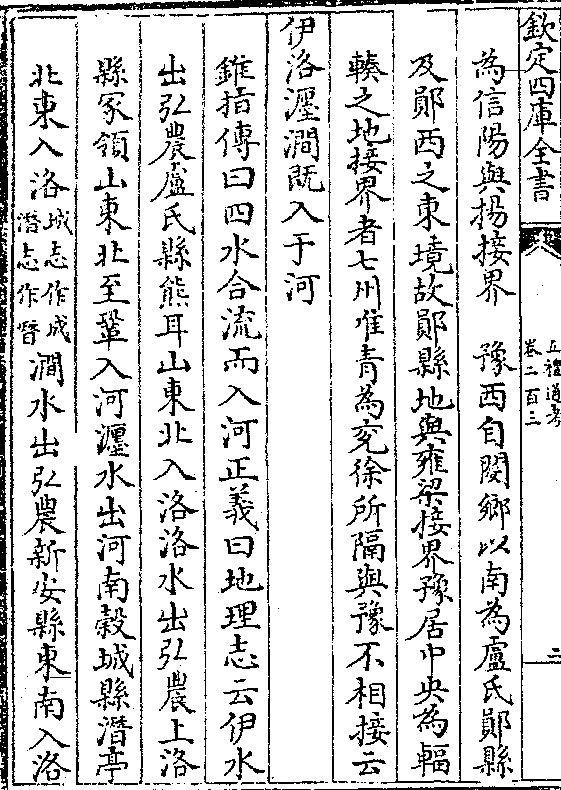 欽定四庫全書
五禮通考
卷二百三
二
為信陽與揚接界　豫西自閿鄉以南為盧氏鄖縣
及鄖西之東境故鄖縣地與雍梁接界豫居中央為輻
輳之地接界者七州唯青為兖徐所隔與豫不相接云
伊洛瀍澗既入于河
錐指傳曰四水合流而入河正義曰地理志云伊水
出弘農盧氏縣熊耳山東北入洛洛水出弘農上洛
縣冢領山東北至鞏入河瀍水出河南榖城縣潛亭
北東入洛城志作成潛志作朁澗水出弘農新安縣東南入洛